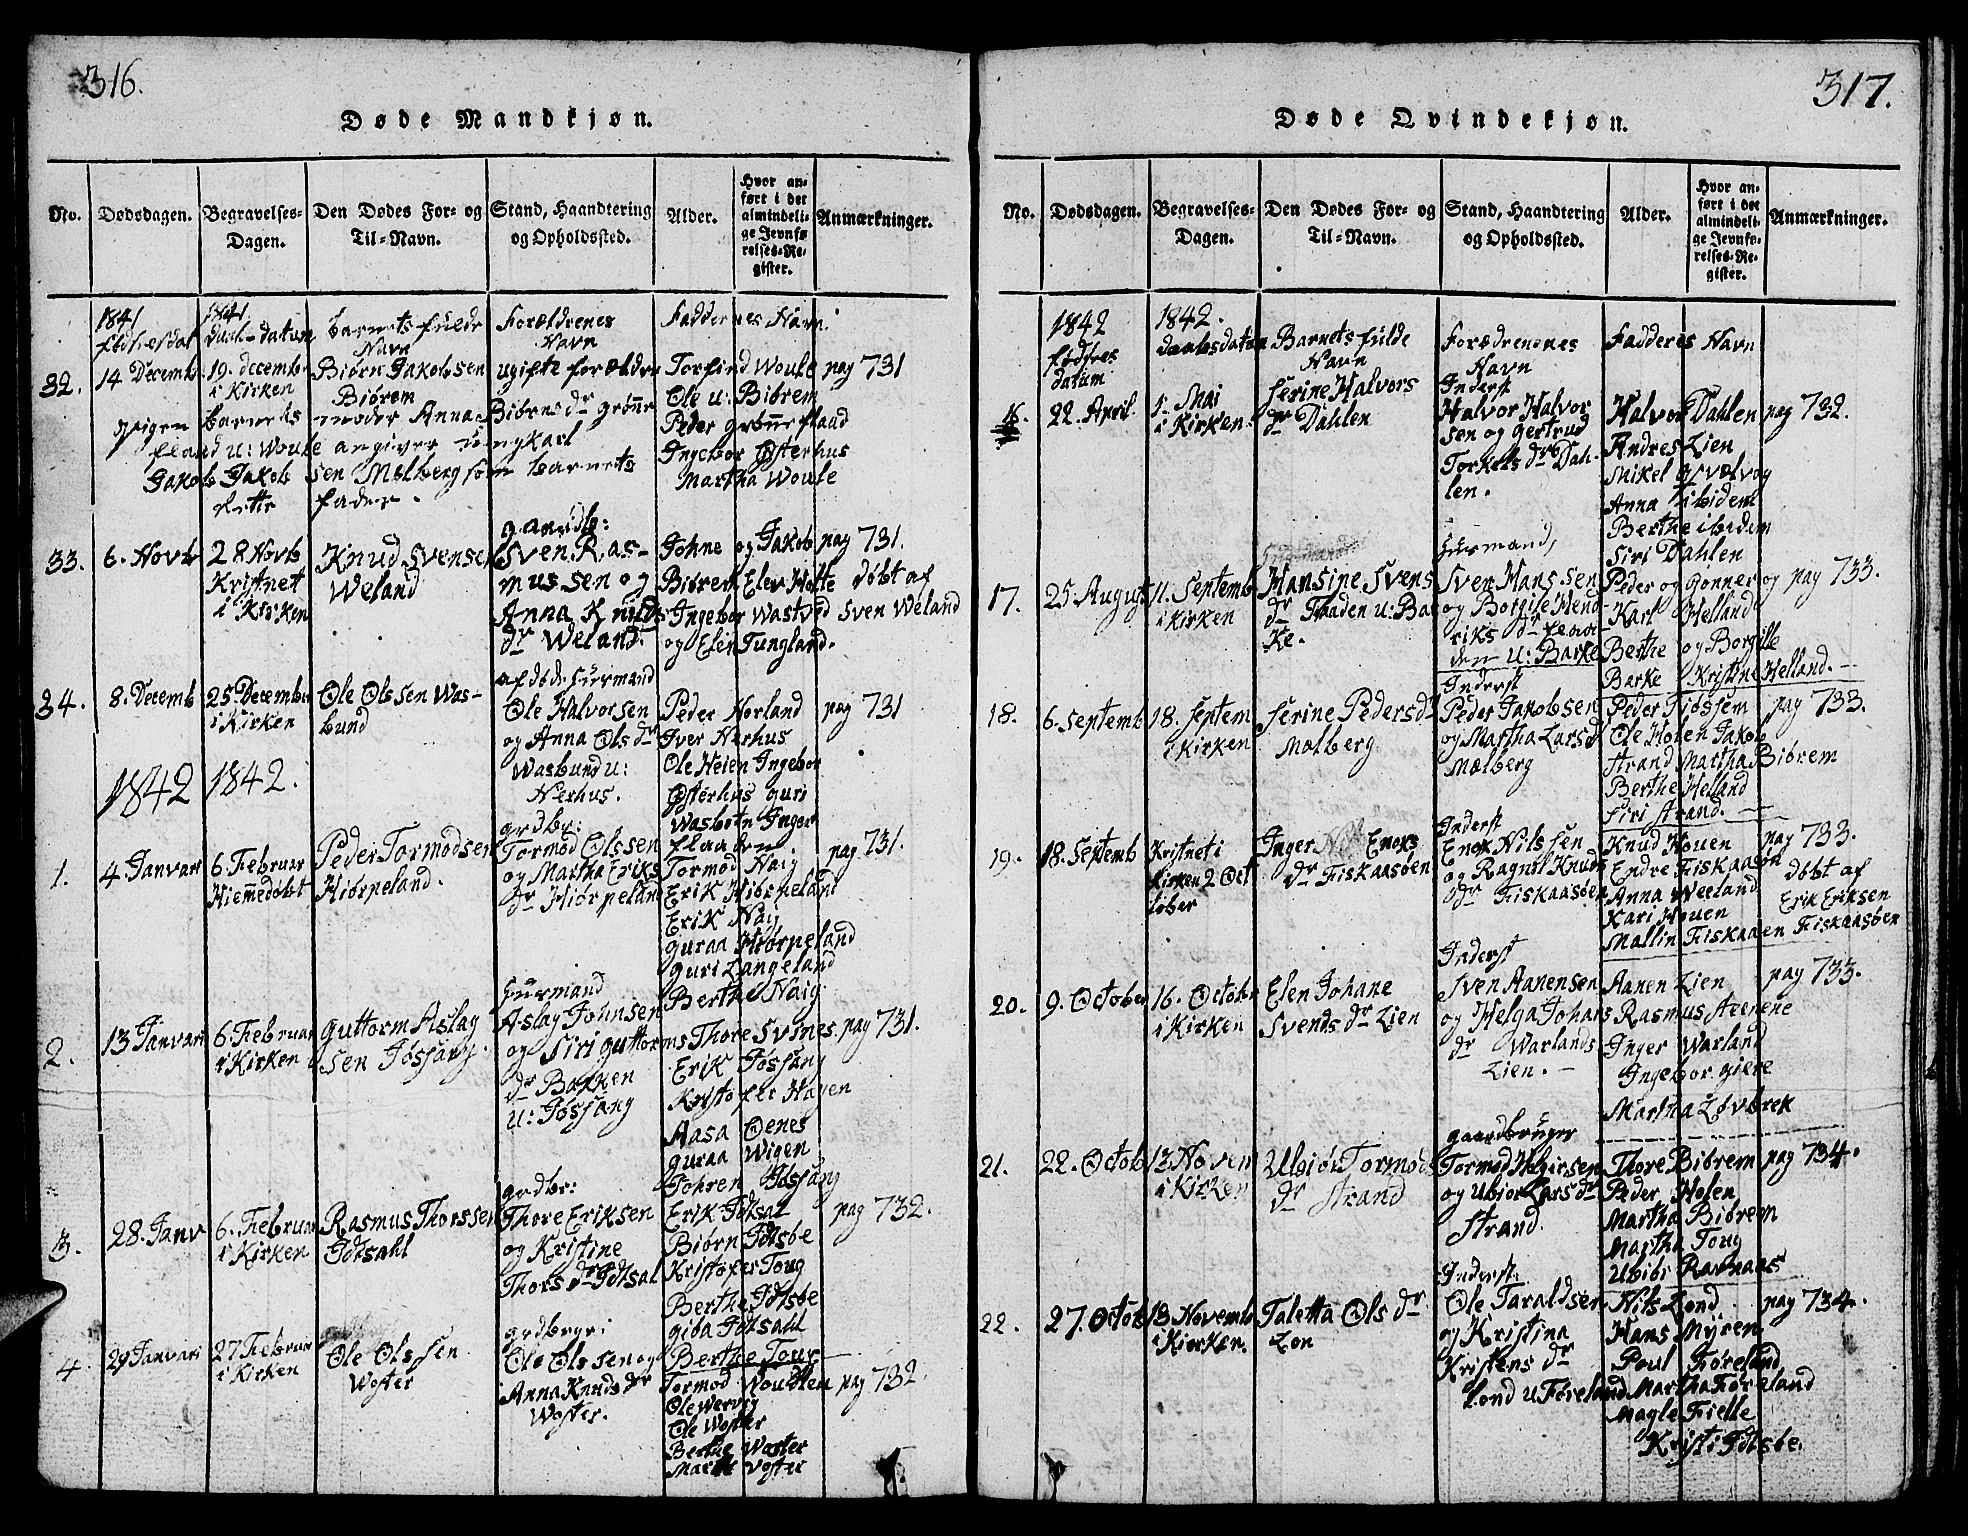 316.
Døde Mandkjøn.
No.
Dødsdagen.
Begravelses-
Dagen.
Den Dødes For- og
Til-Navn.
Stand, Haandtering
og Opholdssted.
Alder.
Hvor an-
ført i det
almindeli-
ge Jevnfø-
relses-Re-
gister.
Anmærkninger.
1841
1841.
Barnets fulde
Navn
Forældrenes
Navn
Faddernes Navn.
32.
14 Decemb
19. decembr
i Kirken
Biørn Jakobsen
Biørem
ugifte forældre
Torfind Woule
Ole u: Biörem
Peder Grönnefland
Ingebor Østerhus
Martha Woule
pag 731
pigen Barnets moder Anna Biørnsdr Grönne
fland u: Woule angiver ungkarl
Jakob Jakobsen Mølberg som Barnets
rette fader.
33.
6. Novb
28 Novb
Kristnet
i Kirken
Knud Svensen
Weland
gaardb:
Sven Ras-
mussen og
Anna Knuds
dr Weland.
Johne og Jakob
Biörem Elev Holte
Ingebor Wastved
og Elen Tungland.
pag 731.
döbt af
Sven Weland
34.
8. Decemb
25 Decembr
i Kirken
Ole Olssen Was-
bund
afdøde Huusmand
Ole Halvorsen
og Anna Olsdr
Wasbund u:
Nerhus.
Peder Norland
Iver Nerhus
Ole Heien Ingebor
Østerhus Guri
Wasbotn Inger
Flaaden.
pag 731
1842
1842.
1.
4 Januari
6 Februar
Hiemmedøbt
Peder Tormodsen
Hiörpeland.
grdbr:
Tormod Olssen
og Martha Eriks
dr Hiörpeland
Tormod Naig
Erik Hiörpeland
Erik Naig
Guraa Hiörpeland
Guri Langeland
Berthe Naig
pag 731.
2.
13 Januari
6 Februar
i Kirken
Guttorm Aslag
sen Jössang.
Huusmand
Aslag Johnsen
og Siri Guttorms
dr Bakken
u: Jössang
Thore Svines.
Erik Jössang
Kristofer Hagen
Aasa Oenes
Guraa Wigen
Johren Jössang
pag 731.
3.
28. Janv
6. Februar
i Kirken
Rasmus Thorssen
Idtsahl
grdbr:
Thore Eriksen
og Kristine
Thorsdr Idtsal
Erik Idtsal
Biørn Idtsöe
Kristofer Toug
Berthe Idtsöe
Giöa Idtsahl
Berthe Toug
pag 732.
4.
29 Januari
27 Februar
i Kirken
Ole Olssen
Woster
grdbrgr:
Ole Olssen og
Anna Knudsdr
Woster.
Tormod Woudlen
Ole Wervig
Ole Woster
Berthe Woster
Marthe Voster
pag 732.
317.
Døde Qvindekjøn.
No.
Dødsdagen.
Begravelses-
Dagen.
Den Dødes For- og
Til-Navn.
Stand, Haandtering
og Opholdssted.
Alder.
Hvor an-
ført i det
almindeli-
ge Jevnfø-
relses-Re-
gister.
Anmærkninger.
1842
fødsels
datum
1842.
daabsdatum
Barnets fulde
Navn
Forældrenes
Navn
Fadderes Navn
16.
22. April
1. Mai
i Kirken
Serine Halvors
dr Dahlen
Inderst
Halvor Halvor
sen og Gertrud
Torkels dr Dah-
len.
Halvor Dahlen
Andres Lien
Mikel Qvælvog
Anna ibidem
Berthe ibidem
Siri Dahlen
pag 732.
17.
25. August
11. Septemb
i Kirken
Hansine Svens
dr Flaaden u: Bar
ke.
Huusmand,
Sven Hanssen
og Borgile Hend-
riks dr Flaa-
den u: Barke
Peder og Gonner og
Karl Helland
Berthe og Borgille
Barke Kristine Helland.
pag 733.
18.
6. Septemb
18. Septem
i Kirken
Serine Pedersdr
Mølberg
Inderst
Peder Jakobsen
og Martha Larsd
Mølberg
Peder Fiøssem
Ole Holen Jakob
Strand Martha Biörem
Berthe Helland
Siri Strand.
pag 733.
19.
18. Septemb
Kristnet i
Kirken 2 Oct
tober
Inger Enoks
dr Fiskaasöen
Inderst
Enok Nilssen
og Ragnil Knuds
dr Fiskaasöen
Knud Houen
Endre Fiskaasön
Anna Weeland
Kari Houen
Mallin Fiskaaen
pag 733.
döbt af
Erik Eriksen
Fiskaasöen
20.
9. October
16. Octobr
i Kirken
Elen Johane
Svends dr Lien
Inderst
Sven Aanensen
og Helga Johans
dr Warlands
Lien.
Aanen Lien
Rasmus Aeenene
Inger Warland
Ingebor Giere
Martha Lövbrek
pag 733.
21.
22. Octob
13 Noven
i Kirken
Ubiør Tormods
dr Strand
gaardbruger
Tormod Helgirsen
og Ubior Larsdr
Strand.
Thore Biörem
Peder Holen
Martha Biörem
Martha Toug
Ubiör Ramaas
pag 734.
22.
27. Octob
13 Novemb
i Kirken.
Taletta Olsdr
Lon
Inderst.
Ole Taraldsen
og Kristina
Kristens dr
Lond u Føreland
Nils Lond
Hans Myren
Poul Føreland
Martha Føreland
Magle Fielle
Kristi Idtsöe.
pag 734.